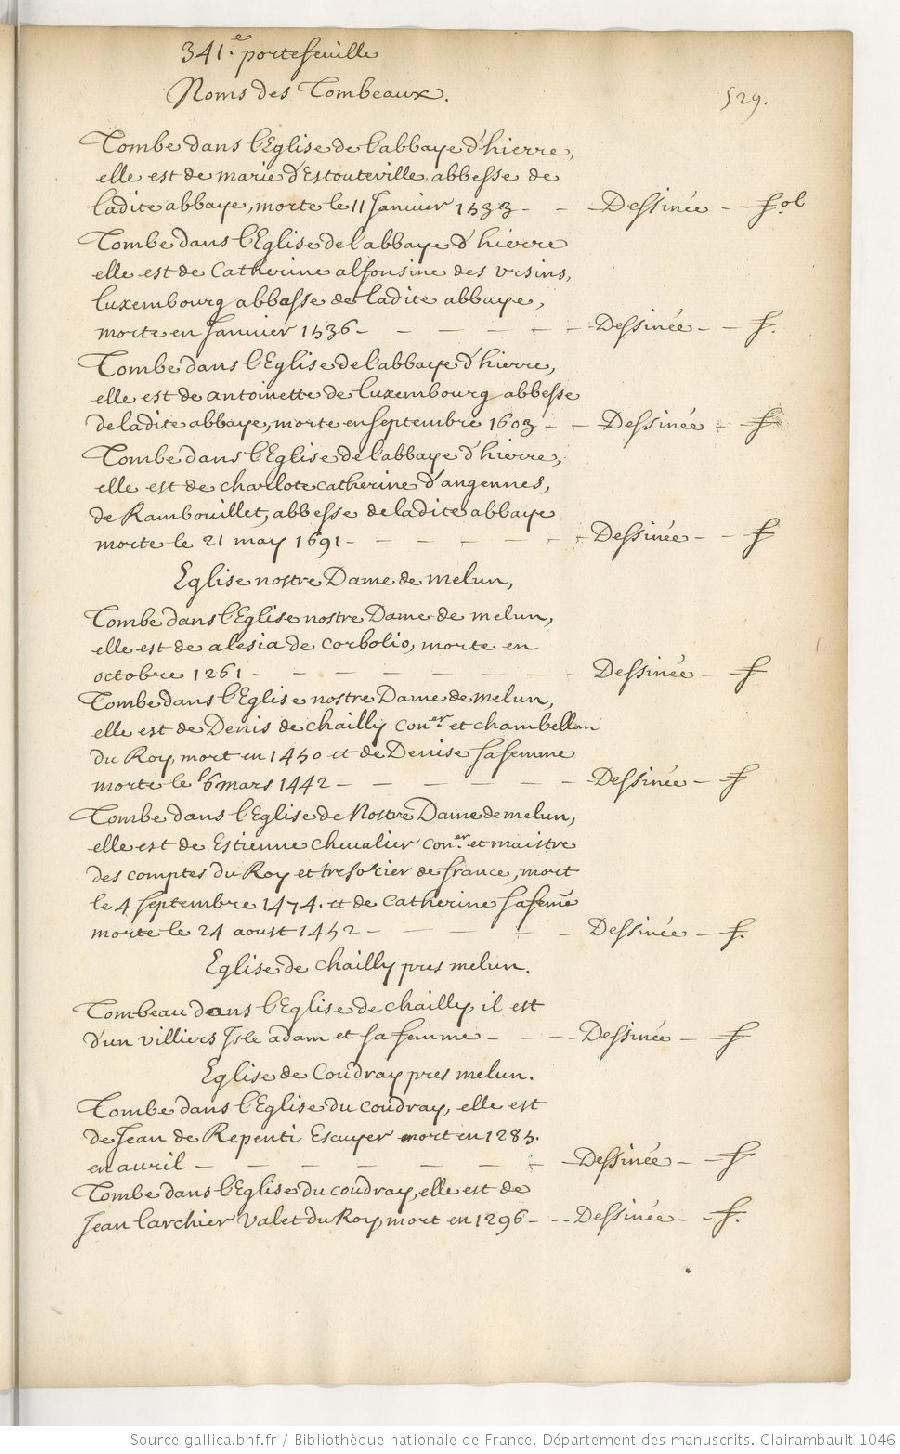 341.e portefeuille
Noms des Tombeaux.
529.
Tombe dans l'Eglise de l'abbaye d'hierre,
elle est de marie d'Estouteville abbesse de
ladite abbaye, morte le 11 Janvier 1533 - - Dessinée - fol
Tombe dans l'Eglise de l'abbaye d'hierre
elle est de Catherine alfonsine des ursins,
luxembourg abbesse de ladite abbaye,
morte en Janvier 1536 - - - - - - Dessinée - - f.
Tombe dans l'Eglise de l'abbaye d'hierre,
elle est de antoinette de luxembourg abbesse
de ladite abbaye, morte en septembre 1603 - - Dessinée - f
Tombe dans l'Eglise de l'abbaye d'hierre,
elle est de charlote catherine d'angennes,
de Rambouillet, abbesse de ladite abbaye
morte le 21 may 1691 - - - - - - Dessinée - - f
Eglise nostre Dame de melun,
Tombe dans l'Eglise nostre Dame de melun,
elle est de alesia de corbolio, morte en
octobre 1261 - - - - - - Dessinée - f
Tombe dans l'Eglise nostre Dame de melun,
elle est de Denis de chailly con.er et chambellan
du Roy, mort en 1450 et de Denise sa femme
morte le 6 mars 1442 - - - - - - Dessinée - f
Tombe dans l'Eglise de Nostre Dame de melun,
elle est de Estienne chevalier con.er et maistre
des comptes du Roy et tresorier de france, mort
le 4 septembre 1474. et de Catherine sa feme
morte le 24 aoust 1452 - - - - - Dessinée - f.
Eglise de chailly pres melun.
Tombeau dans l'Eglise de chailly, il est
d'un villiers Isle adam et sa femme - - - Dessinée - f
Eglise de Coudray pres melun.
Tombe dans l'Eglise du coudray, elle est
de Jean de Repenti Escuyer mort en 1285.
en avril - - - - - - - - Dessinée - f.
Tombe dans l'Eglise du coudray, elle est de
Jean l'archier valet du Roy, mort en 1296 - - - Dessinée - f.
Source gallica.bnf.fr / Bibliothèque nationale de France. Département des manuscrits. Clairambault 1046